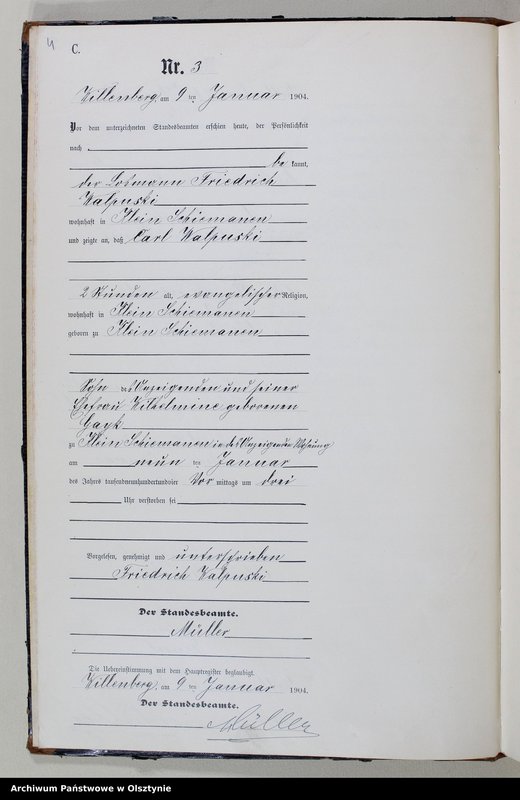 4
C.
Nr. 3
Willenberg, am 9 ten Januar 1904.
Vor dem unterzeichneten Standesbeamten erschien heute, der Persönlichkeit
nach
be kannt,
der Losmann Friedrich
Kalpuski
wohnhaft in Klein Schiemanen
und zeigte an, daß Carl Kalpuski
2 Stunden alt, evangelischer Religion,
wohnhaft in Klein Schiemanen
geboren zu Klein Schiemanen
Sohn des Anzeigenden und seiner
Ehefrau Wilhelmine geborenen
Gayk
zu Klein Schiemanen in des Anzeigenden Wohnung
am neun ten Januar
des Jahres tausendneunhundertundvier Vor mittags um drei
Uhr verstorben sei
Vorgelesen, genehmigt und unterschrieben
Friedrich Kalpuski
Der Standesbeamte.
Müller
Die Uebereinstimmung mit dem Hauptregister beglaubigt.
Willenberg, am 9 ten Januar 1904.
Der Standesbeamte.
Müller
Archiwum Państwowe w Olsztynie